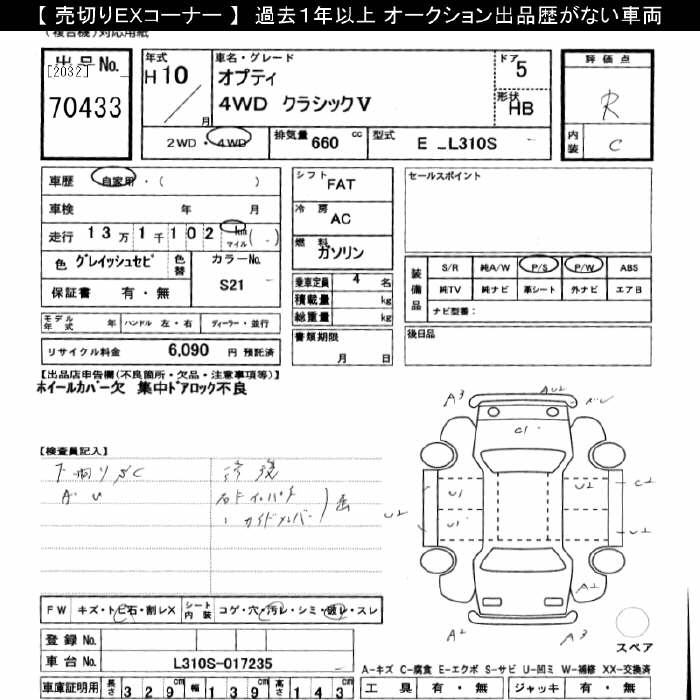 【 売切りEXコーナー 】 過去1年以上 オークション出品歴がない車両
(複合機)対応用紙
出品No.
[2032]
70433
年式
H10
月
車名・グレード
オプティ
4WD クラシックV
ドア
5
形状
HB
評価点
R
内装
C
2WD・4WD
排気量 660 cc
型式 E -L310S
車歴 自家用・( )
車検 年 月
走行 13万1千102 km マイル ( )
色 グレイッシュセピ
色替
カラーNo.
S21
保証書 有・無
モデル年式 年 ハンドル 左・右 ディーラー・並行
リサイクル料金 6,090 円 預託済
シフト
FAT
冷房
AC
燃料
ガソリン
乗車定員 4 名
積載量 kg
総重量 kg
書類期限
月 日
セールスポイント
装備品
S/R 純A/W P/S P/W ABS
純TV 純ナビ 革シート 外ナビ エアB
ナビ型番:
後日品
【出品店申告欄(不良箇所・欠品・注意事項等)】
ホイールカバー欠 集中ドアロック不良
【検査員記入】
下回りSC
A・U
修復
A3
AU2
C1
U1
U2
C2
U2
U1
U2
A2
A2
A3
スペア
FW キズ・トビ石・割レX
シート内装 コゲ・穴・汚レ・シミ・破レ・スレ
登録 No.
車台 No. L310S-017235
車庫証明用 長さ 329cm 幅 139cm 高さ 143cm
A-キズ C-腐食 E-エクボ S-サビ U-凹ミ W-補修 XX-交換済
工具 有・無 ジャッキ 有・無